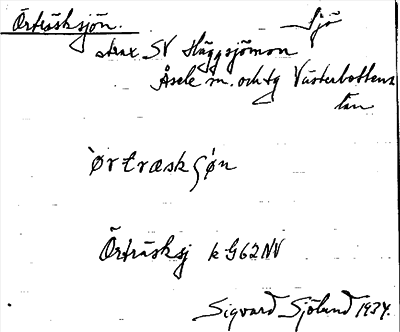 Örträsksjön. Sjö
strax SV Häggsjömon
Åsele sn. och tg Västerbottens
län
`ørtræskʃøn
Örträsksj k G62NV
Sigvard Sjölund 1934.